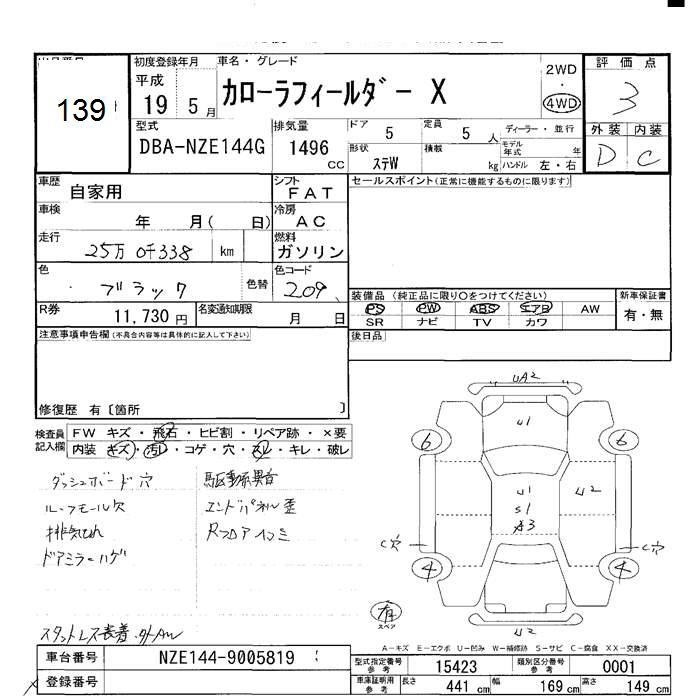 初度登録年月
車名・グレード
評価点
139
平成
19 5月
カローラフィールダー X
2WD
・
4WD
3
型式
DBA-NZE144G
排気量
1496
CC
ドア
5
定員
5 人
ディーラー・並行
モデル年式 年
形状
ステW
積載
kg
ハンドル 左・右
外装 内装
D C
車歴
自家用
シフト
FAT
セールスポイント(正常に機能するものに限ります)
車検
年 月( 日)
冷房
AC
走行
25万0千338 km
燃料
ガソリン
色
ブラック
色替
色コード
209
R券
11,730円
名変通知期限
月 日
装備品(純正品に限り○をつけてください)
PS PW ABS エアB AW
SR ナビ TV カワ
新車保証書
有・無
注意事項申告欄(不具合内容等は具体的に記入して下さい)
後日品
修復歴 有〔箇所 〕
検査員記入欄
FW キズ・飛石・ヒビ割・リペア跡・×要
内装 キズ・汚レ・コゲ・穴・スレ・キレ・破レ
ダッシュボード穴
駆動系異音
ルーフモール欠
エンドパネル歪
排気もれ
RフロアインS
ドアミラーハゲ
スタットレス装着.外AW
UA2
U1
6
6
U1
S1
A3
U2
C穴
C穴
4
4
U2
有
スペア
A-キズ E-エクボ U-凹み W-補修跡 S-サビ C-腐食 XX-交換済
車台番号
NZE144-9005819
登録番号
型式指定番号
参考
15423
類別区分番号
参考
0001
車庫証明用
参考
長さ
441 cm
幅
169 cm
高さ
149 cm